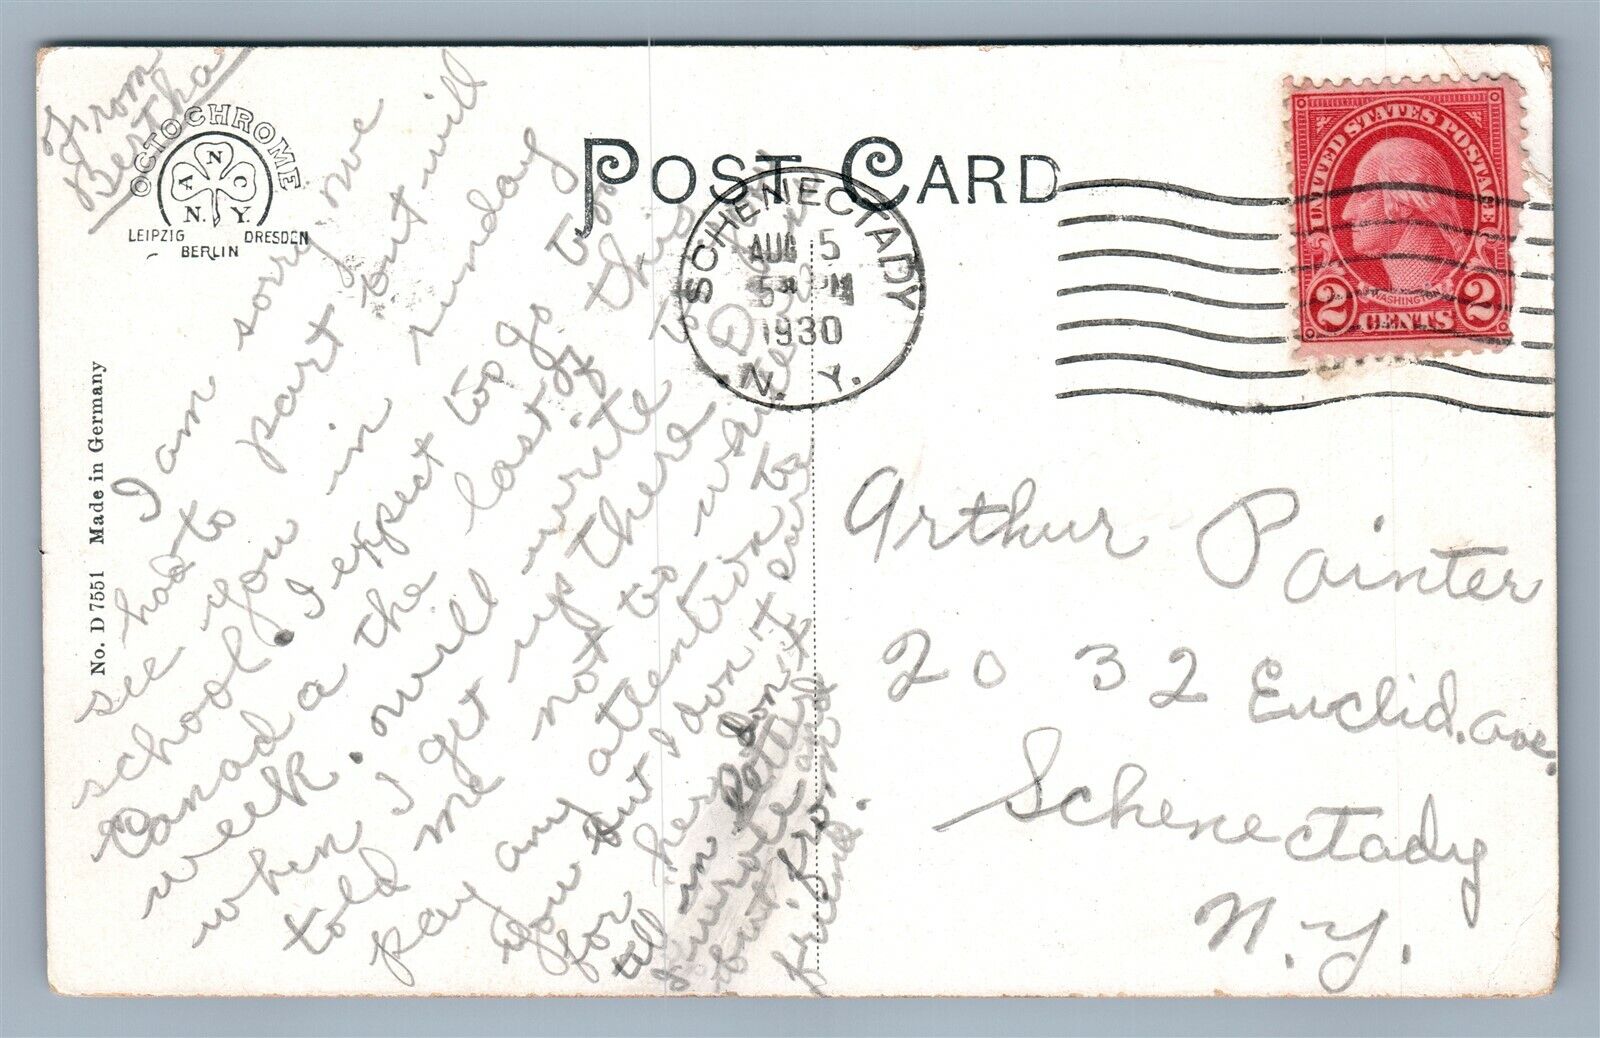 From
Bertha
OCTOCHROME
A N C
N. Y.
LEIPZIG DRESDEN
BERLIN
POST CARD
SCHENECTADY
AUG 5
1930
N. Y.
UNITED STATES POSTAGE
WASHINGTON
2 CENTS 2
No. D 7551 Made in Germany
I am sorry we
had to part but will
see you in sunday
school. I expect to go to
Canada the last of this
week. will write to
when I get up there
told me not to
pay any attention to
you but I don't
for her
till in letter
friend.
Arthur Painter
2032 Euclid. ave.
Schenectady
N.Y.